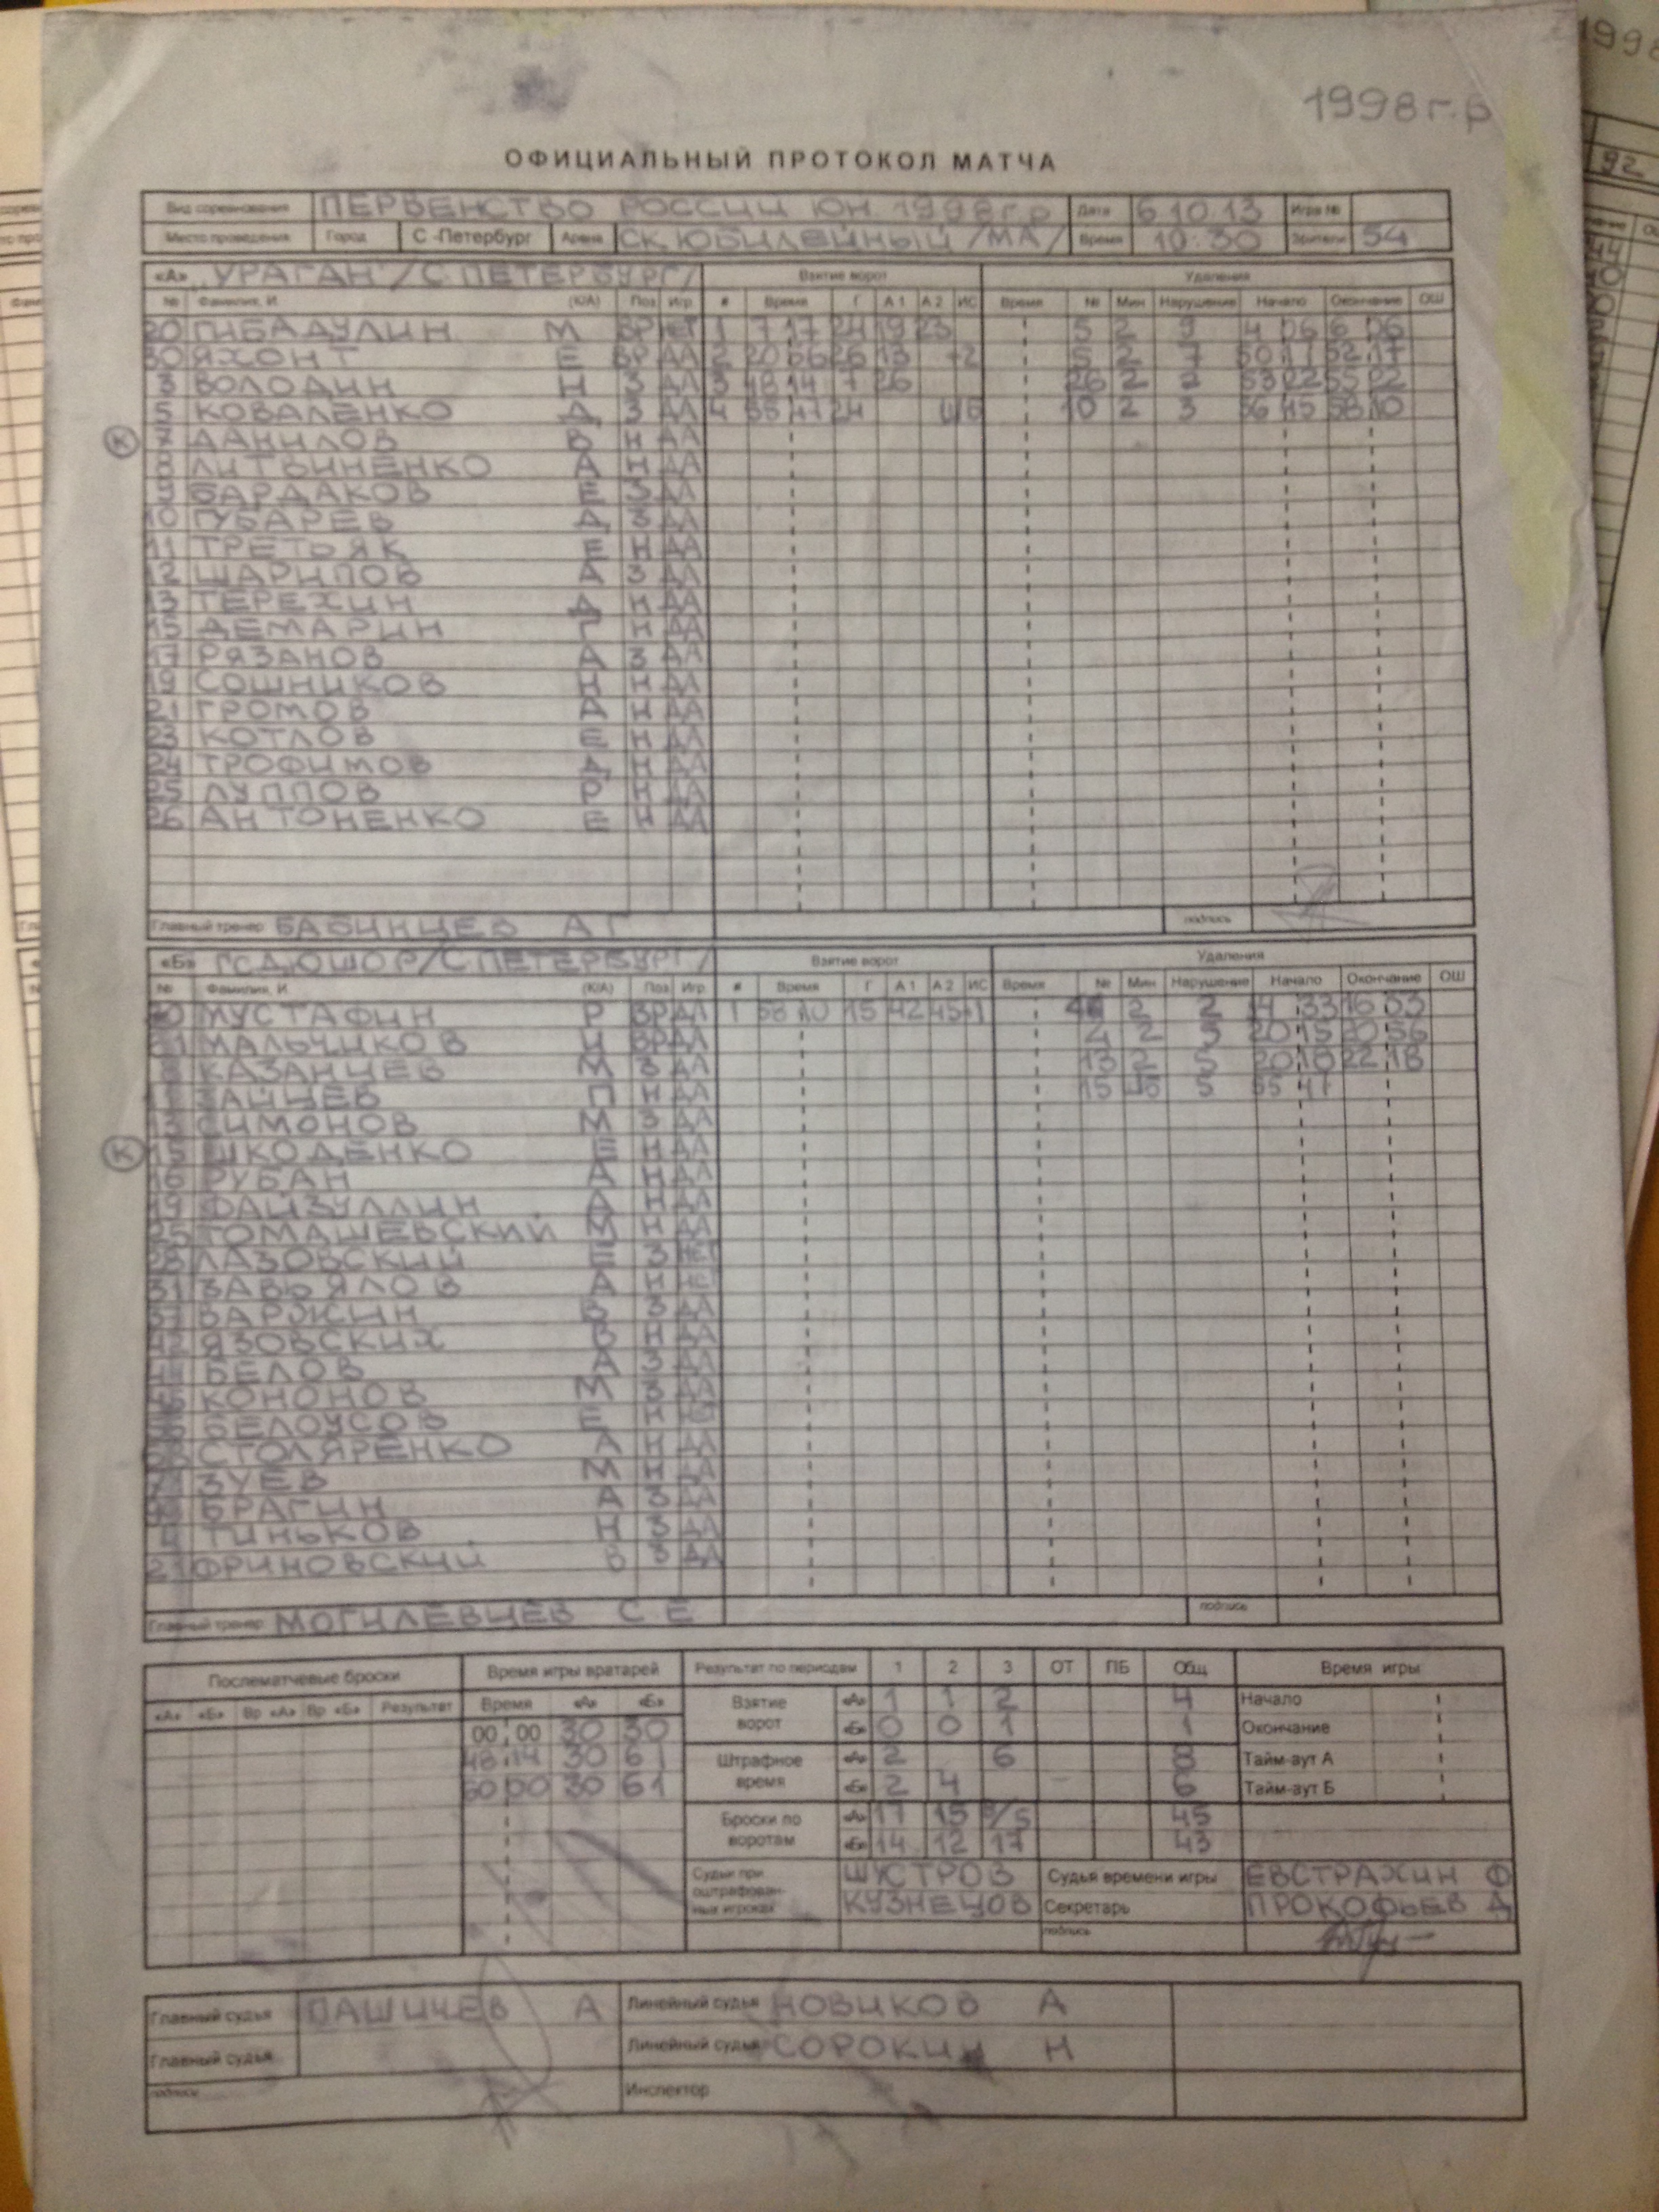 1998г.р
ОФИЦИАЛЬНЫЙ ПРОТОКОЛ МАТЧА
Вид соревнования ПЕРВЕНСТВО РОССИИ ЮН. 1998г.р Дата 6.10.13 Игра №
Место проведения Город С-Петербург Арена СК ЮБИЛЕЙНЫЙ /МА/ Время 10:30 Зрители 54
«А» "УРАГАН" /С.ПЕТЕРБУРГ/ Взятие ворот Удаления
№ Фамилия, И. (К/А) Поз Игр # Время Г А1 А2 ИС Время № Мин Нарушение Начало Окончание ОШ
20 ГИБАДУЛИН М ВР НЕТ 1 7 17 24 19 23 5 2 9 4 06 6 06
30 ЯХОНТ Е ВР ДА 2 20 56 26 13 +2 5 2 7 50 17 52 17
3 ВОЛОДИН Н З ДА 3 48 14 7 26 26 2 2 53 22 55 22
5 КОВАЛЕНКО Д З ДА 4 55 47 24 ШБ 10 2 3 56 45 58 10
К 7 ДАНИЛОВ В Н ДА
8 ЛИТВИНЕНКО А Н ДА
9 БАРДАКОВ Е З ДА
10 ГУБАРЕВ Д З ДА
11 ТРЕТЬЯК Е Н ДА
12 ШАРИПОВ А З ДА
13 ТЕРЕХИН Д Н ДА
15 ДЕМАРИН Г Н ДА
17 РЯЗАНОВ А З ДА
19 СОШНИКОВ Н Н ДА
21 ГРОМОВ А Н ДА
23 КОТЛОВ Е Н ДА
24 ТРОФИМОВ Д Н ДА
25 ЛУППОВ Р Н ДА
26 АНТОНЕНКО Е Н ДА
Главный тренер БАБИНЦЕВ А Г подпись
«Б» ГСДЮШОР /С.ПЕТЕРБУРГ/ Взятие ворот Удаления
№ Фамилия, И. (К/А) Поз Игр # Время Г А1 А2 ИС Время № Мин Нарушение Начало Окончание ОШ
30 МУСТАФИН Р ВР ДА 1 58 10 15 42 45 +1 2 2 14 33 16 33
61 МАЛЬЧИКОВ И ВР ДА 4 2 5 20 15 20 56
КАЗАНЦЕВ М З ДА 13 2 5 20 18 22 18
11 ЗАЙЦЕВ П Н ДА 15 ШБ 5 55 47
13 СИМОНОВ М З ДА
К 15 ШКОДЕНКО Е Н ДА
16 РУБАН А Н ДА
19 ФАЙЗУЛЛИН А Н ДА
25 ТОМАШЕВСКИЙ М Н ДА
28 ЛАЗОВСКИЙ Е З НЕТ
31 ЗАВЬЯЛОВ А Н НЕТ
37 ВАРЖИН В З ДА
42 ЯЗОВСКИХ В Н ДА
БЕЛОВ А З ДА
45 КОНОНОВ М З ДА
БЕЛОУСОВ Е Н НЕТ
СТОЛЯРЕНКО А Н ДА
ЗУЕВ М Н ДА
БРАГИН А З ДА
4 ТИНЬКОВ Н З ДА
21 ФРИНОВСКИЙ В З ДА
Главный тренер МОГИЛЕВЦЕВ С Е подпись
Послематчевые броски Время игры вратарей Результат по периодам 1 2 3 ОТ ПБ Общ Время игры
«А» «Б» Вр «А» Вр «Б» Результат Время «А» «Б» Взятие ворот «А» 1 1 2 4 Начало
00 00 30 30 «Б» 0 0 1 1 Окончание
48 14 30 61 Штрафное время «А» 2 6 8 Тайм-аут А
60 00 30 61 «Б» 2 4 6 Тайм-аут Б
Броски по воротам «А» 17 15 45
«Б» 14 12 17 43
Судьи при оштрафованных игроках ШУСТРОВ Судья времени игры ЕВСТРАХИН Ф
КУЗНЕЦОВ Секретарь ПРОКОФЬЕВ Д
подпись
Главный судья ПАШИЧЕВ А Линейный судья НОВИКОВ А
Главный судья Линейный судья СОРОКИН Н
подпись Инспектор